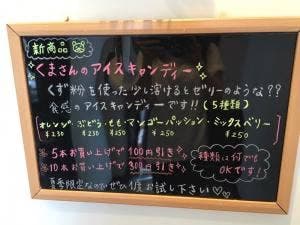 新商品
くまさんのアイスキャンディー
くず粉を使った少し溶けるとゼリーのような??
食感のアイスキャンディーです!!(5種類)
オレンジ・ぶどう・もも・マンゴーパッション・ミックスベリー
¥230 ¥230 ¥250 ¥250 ¥250
※5本お買い上げで100円引き
※10本お買い上げで300円引き
種類は何でも
OKです!
夏季限定なのでぜひ1度お試し下さい♡♡